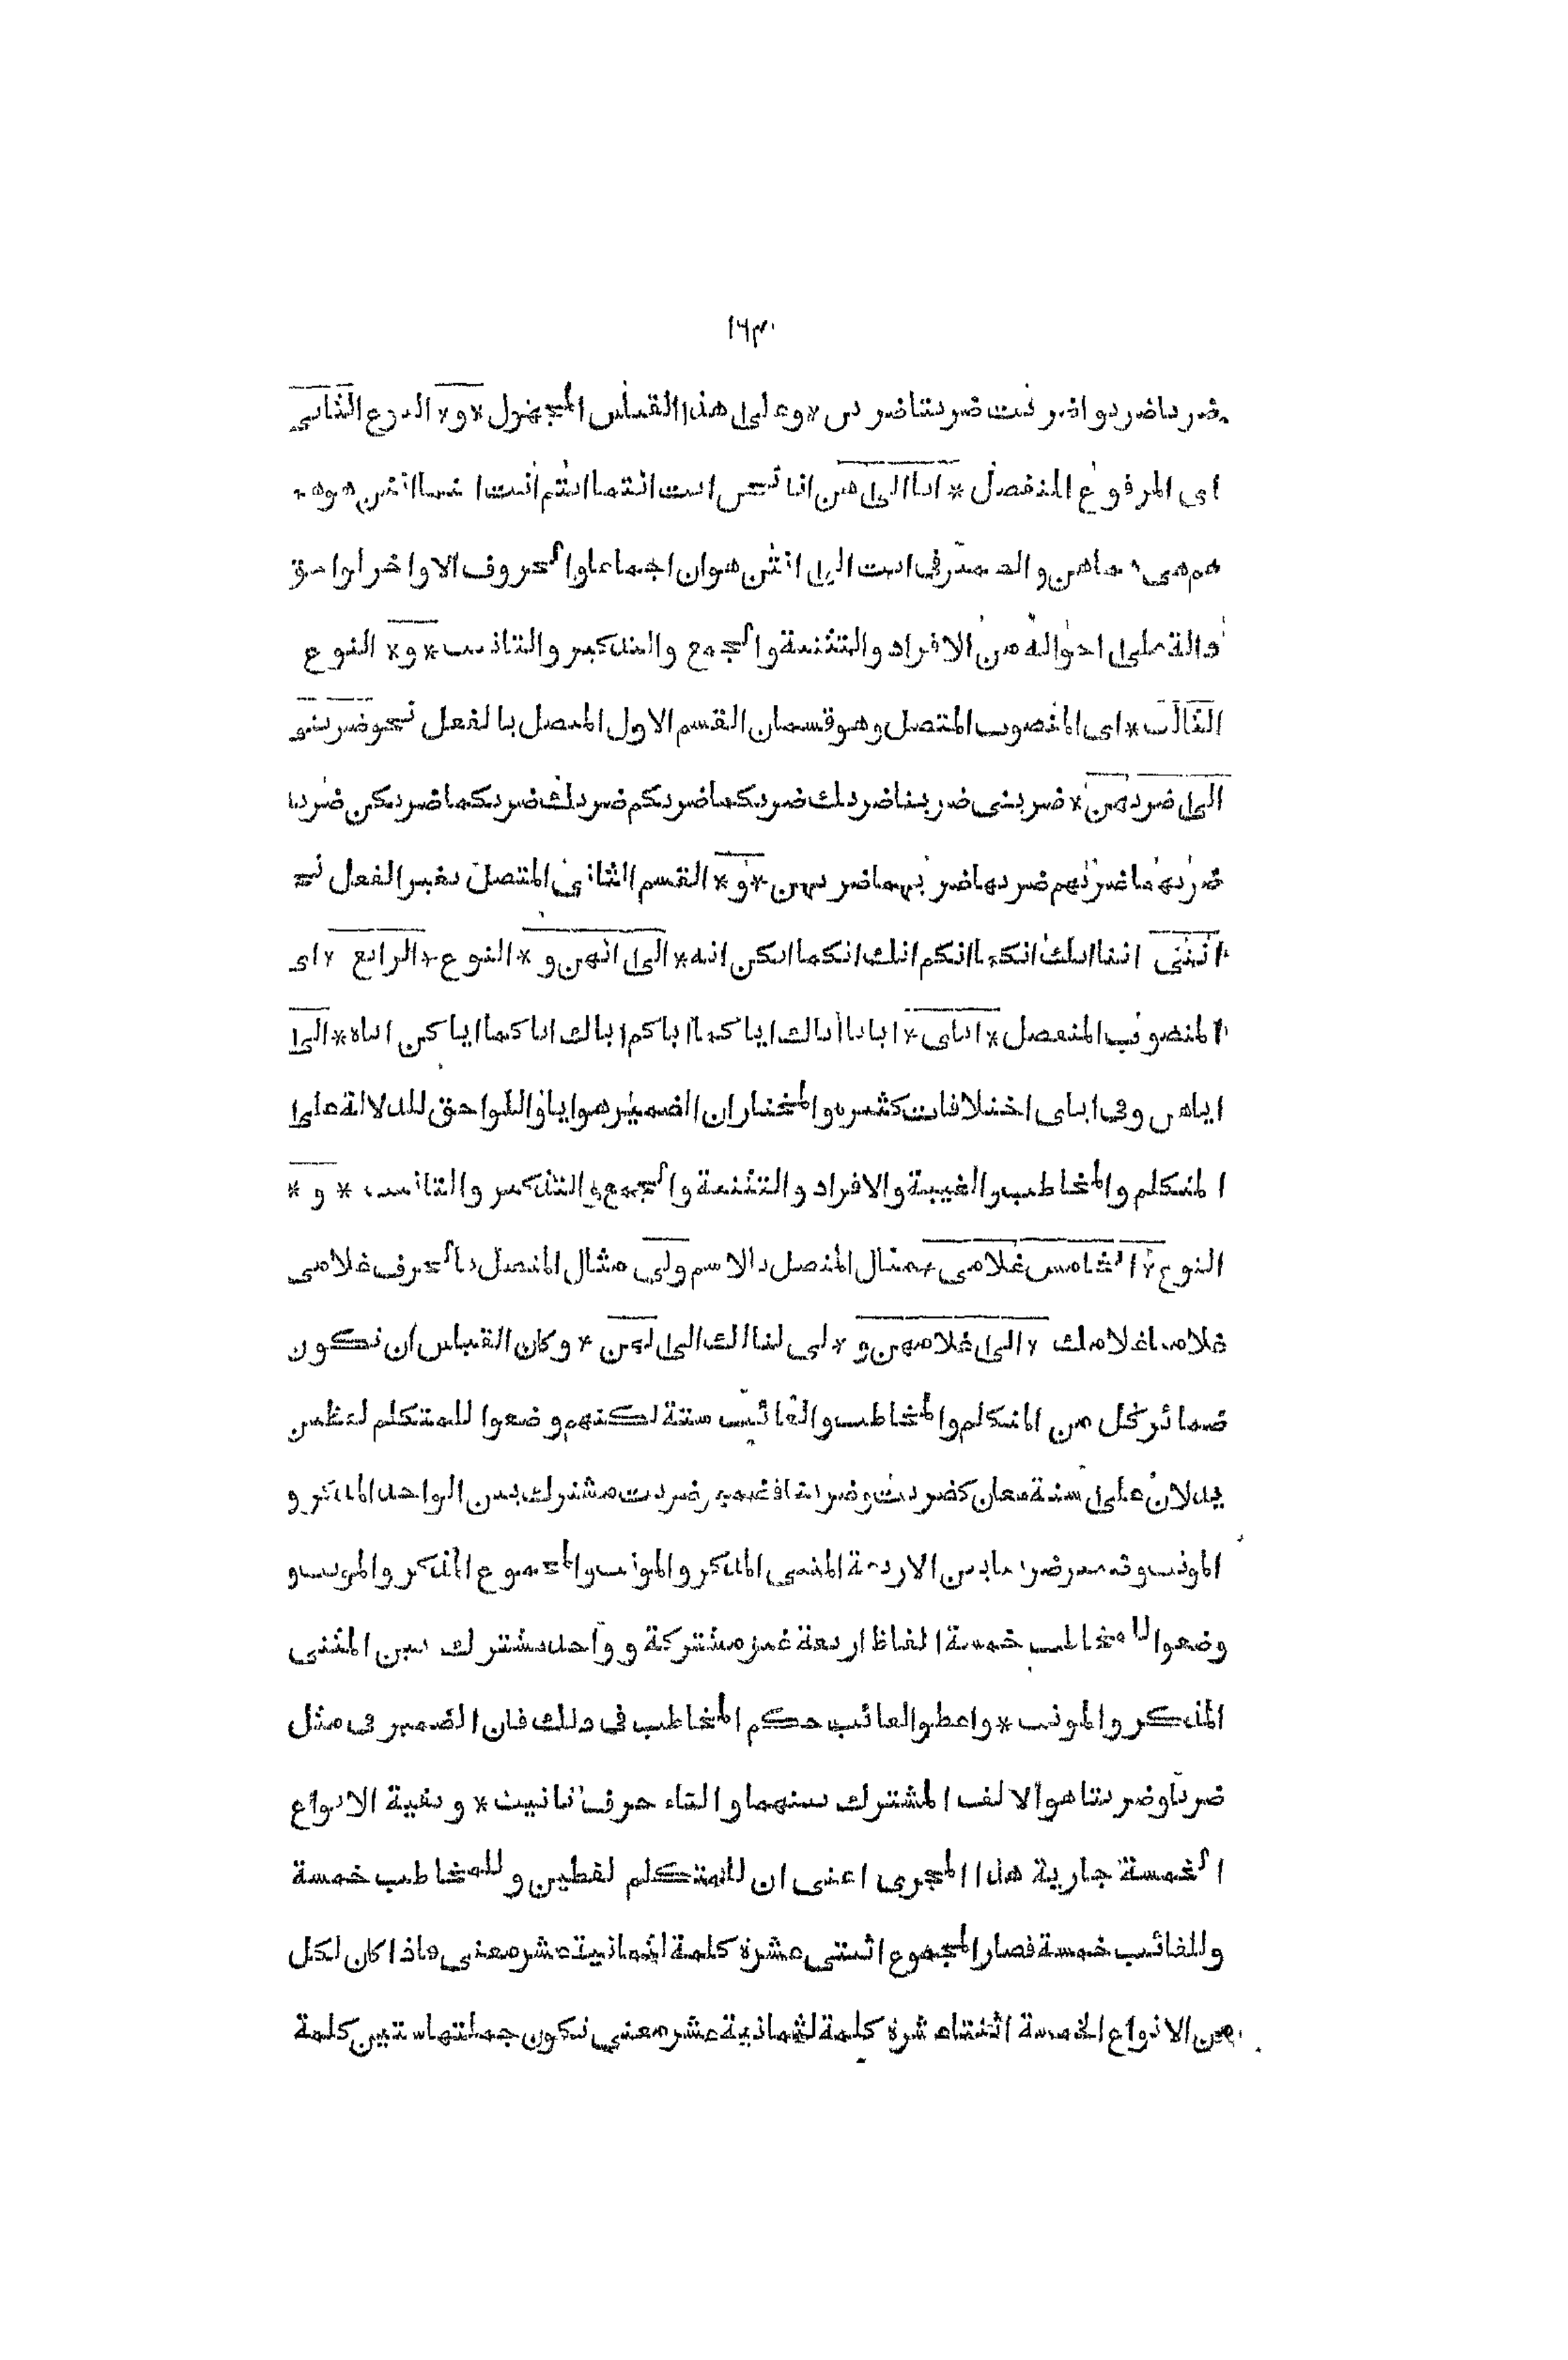 ١٦٣
ضربا ضربوا ضربت ضربتا ضربن * وعلى هذا القياس المجهول * و * النوع الثانى
اى المرفوع المنفصل * انا الى هن انا نحن انت انتما انتم انت انتما انتن هو هما
هم هى هما هن والضمير فى انت الى انتن هو ان اجماعا والحروف الاواخر لواحق
دالة على احواله من الافراد والتثنية والجمع والتذكير والتانيث * و * النوع
الثالث * اى المنصوب المتصل وهو قسمان القسم الاول المتصل بالفعل نحو ضربنى
الى ضربهن * ضربنى ضربنا ضربك ضربكما ضربكم ضربك ضربكما ضربكن ضربه
ضربهما ضربهم ضربها ضربهما ضربهن * و * القسم الثانى المتصل بغير الفعل نحو
اننى اننا انك انكما انكم انك انكما انكن انه * الى انهن و * النوع * الرابع * اى
المنصوب المنفصل * اياى * ايانا اياك اياكما اياكم اياك اياكما اياكن اياه * الى
اياهن وفى اياى اختلافات كثيره والمختار ان الضمير هو ايا واللواحق للدلالة على
المتكلم والمخاطب والغيبة والافراد والتثنية والجمع والتذكير والتانيث * و *
النوع * الخامس غلامى * مثال المتصل بالاسم ولى مثال المتصل بالحرف غلامى
غلامنا غلامك * الى غلامهن و * لى لنا لك الى لهن * وكان القياس ان نكون
ضمائر كل من المتكلم والمخاطب والغائب ستة لكنهم وضعوا للمتكلم لفظين
يدلان على ستة معان كضربت وضربنا فضمير ضربت مشترك بين الواحد المذكر و
المونث وضمير ضربنا بين الاربعة المثنى المذكر والمونث والمجموع المذكر والمونث و
وضعوا للمخاطب خمسة الفاظ اربعة غير مشتركة وواحد مشترك بين المثنى
المذكر والمونث * واعطوا لغائب حكم المخاطب فى ذلك فان الضمير فى مثل
ضربا وضربتا هو الالف المشترك بينهما والتاء حرف تانيث * وبقية الانواع
الخمسة جارية هذا المجرى اعنى ان للمتكلم لفظين وللمخاطب خمسة
وللغائب خمسة فصار المجموع اثنتى عشرة كلمة لثمانية عشر معنى فاذا كان لكل
من الانواع الخمسة اثنتا عشرة كلمة لثمانية عشر معنى نكون جملتها ستين كلمة